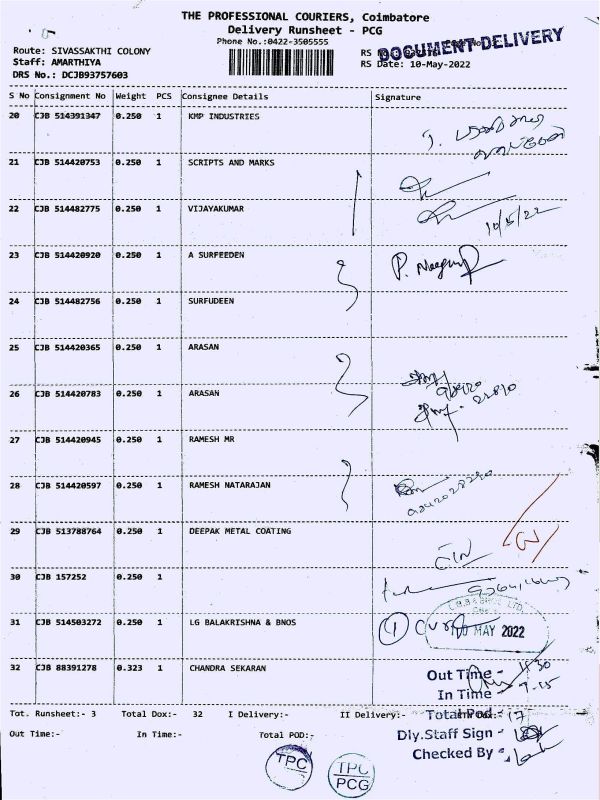 THE PROFESSIONAL COURIERS, Coimbatore
Delivery Runsheet - PCG
Phone No.:0422-3505555
DOCUMENT DELIVERY
Route: SIVASSAKTHI COLONY
Staff: AMARTHIYA
RS Date: 10-May-2022
DRS No.: DCJB93757603
S No Consignment No Weight PCS Consignee Details Signature
20 CJB 514391347 0.250 1 KMP INDUSTRIES
21 CJB 514420753 0.250 1 SCRIPTS AND MARKS
22 CJB 514482775 0.250 1 VIJAYAKUMAR
10/5/22
23 CJB 514420920 0.250 1 A SURFEEDEN
24 CJB 514482756 0.250 1 SURFUDEEN
25 CJB 514420365 0.250 1 ARASAN
26 CJB 514420783 0.250 1 ARASAN
27 CJB 514420945 0.250 1 RAMESH MR
28 CJB 514420597 0.250 1 RAMESH NATARAJAN
29 CJB 513788764 0.250 1 DEEPAK METAL COATING
30 CJB 157252 0.250 1
31 CJB 514503272 0.250 1 LG BALAKRISHNA & BNOS
1
MAY 2022
32 CJB 88391278 0.323 1 CHANDRA SEKARAN
Out Time -
In Time - 7-15
Tot. Runsheet:- 3 Total Dox:- 32 I Delivery:- II Delivery:-
Total Pod - 17
Out Time:- In Time:- Total POD:-
Dly.Staff Sign -
Checked By -
TPC
TPC
PCG